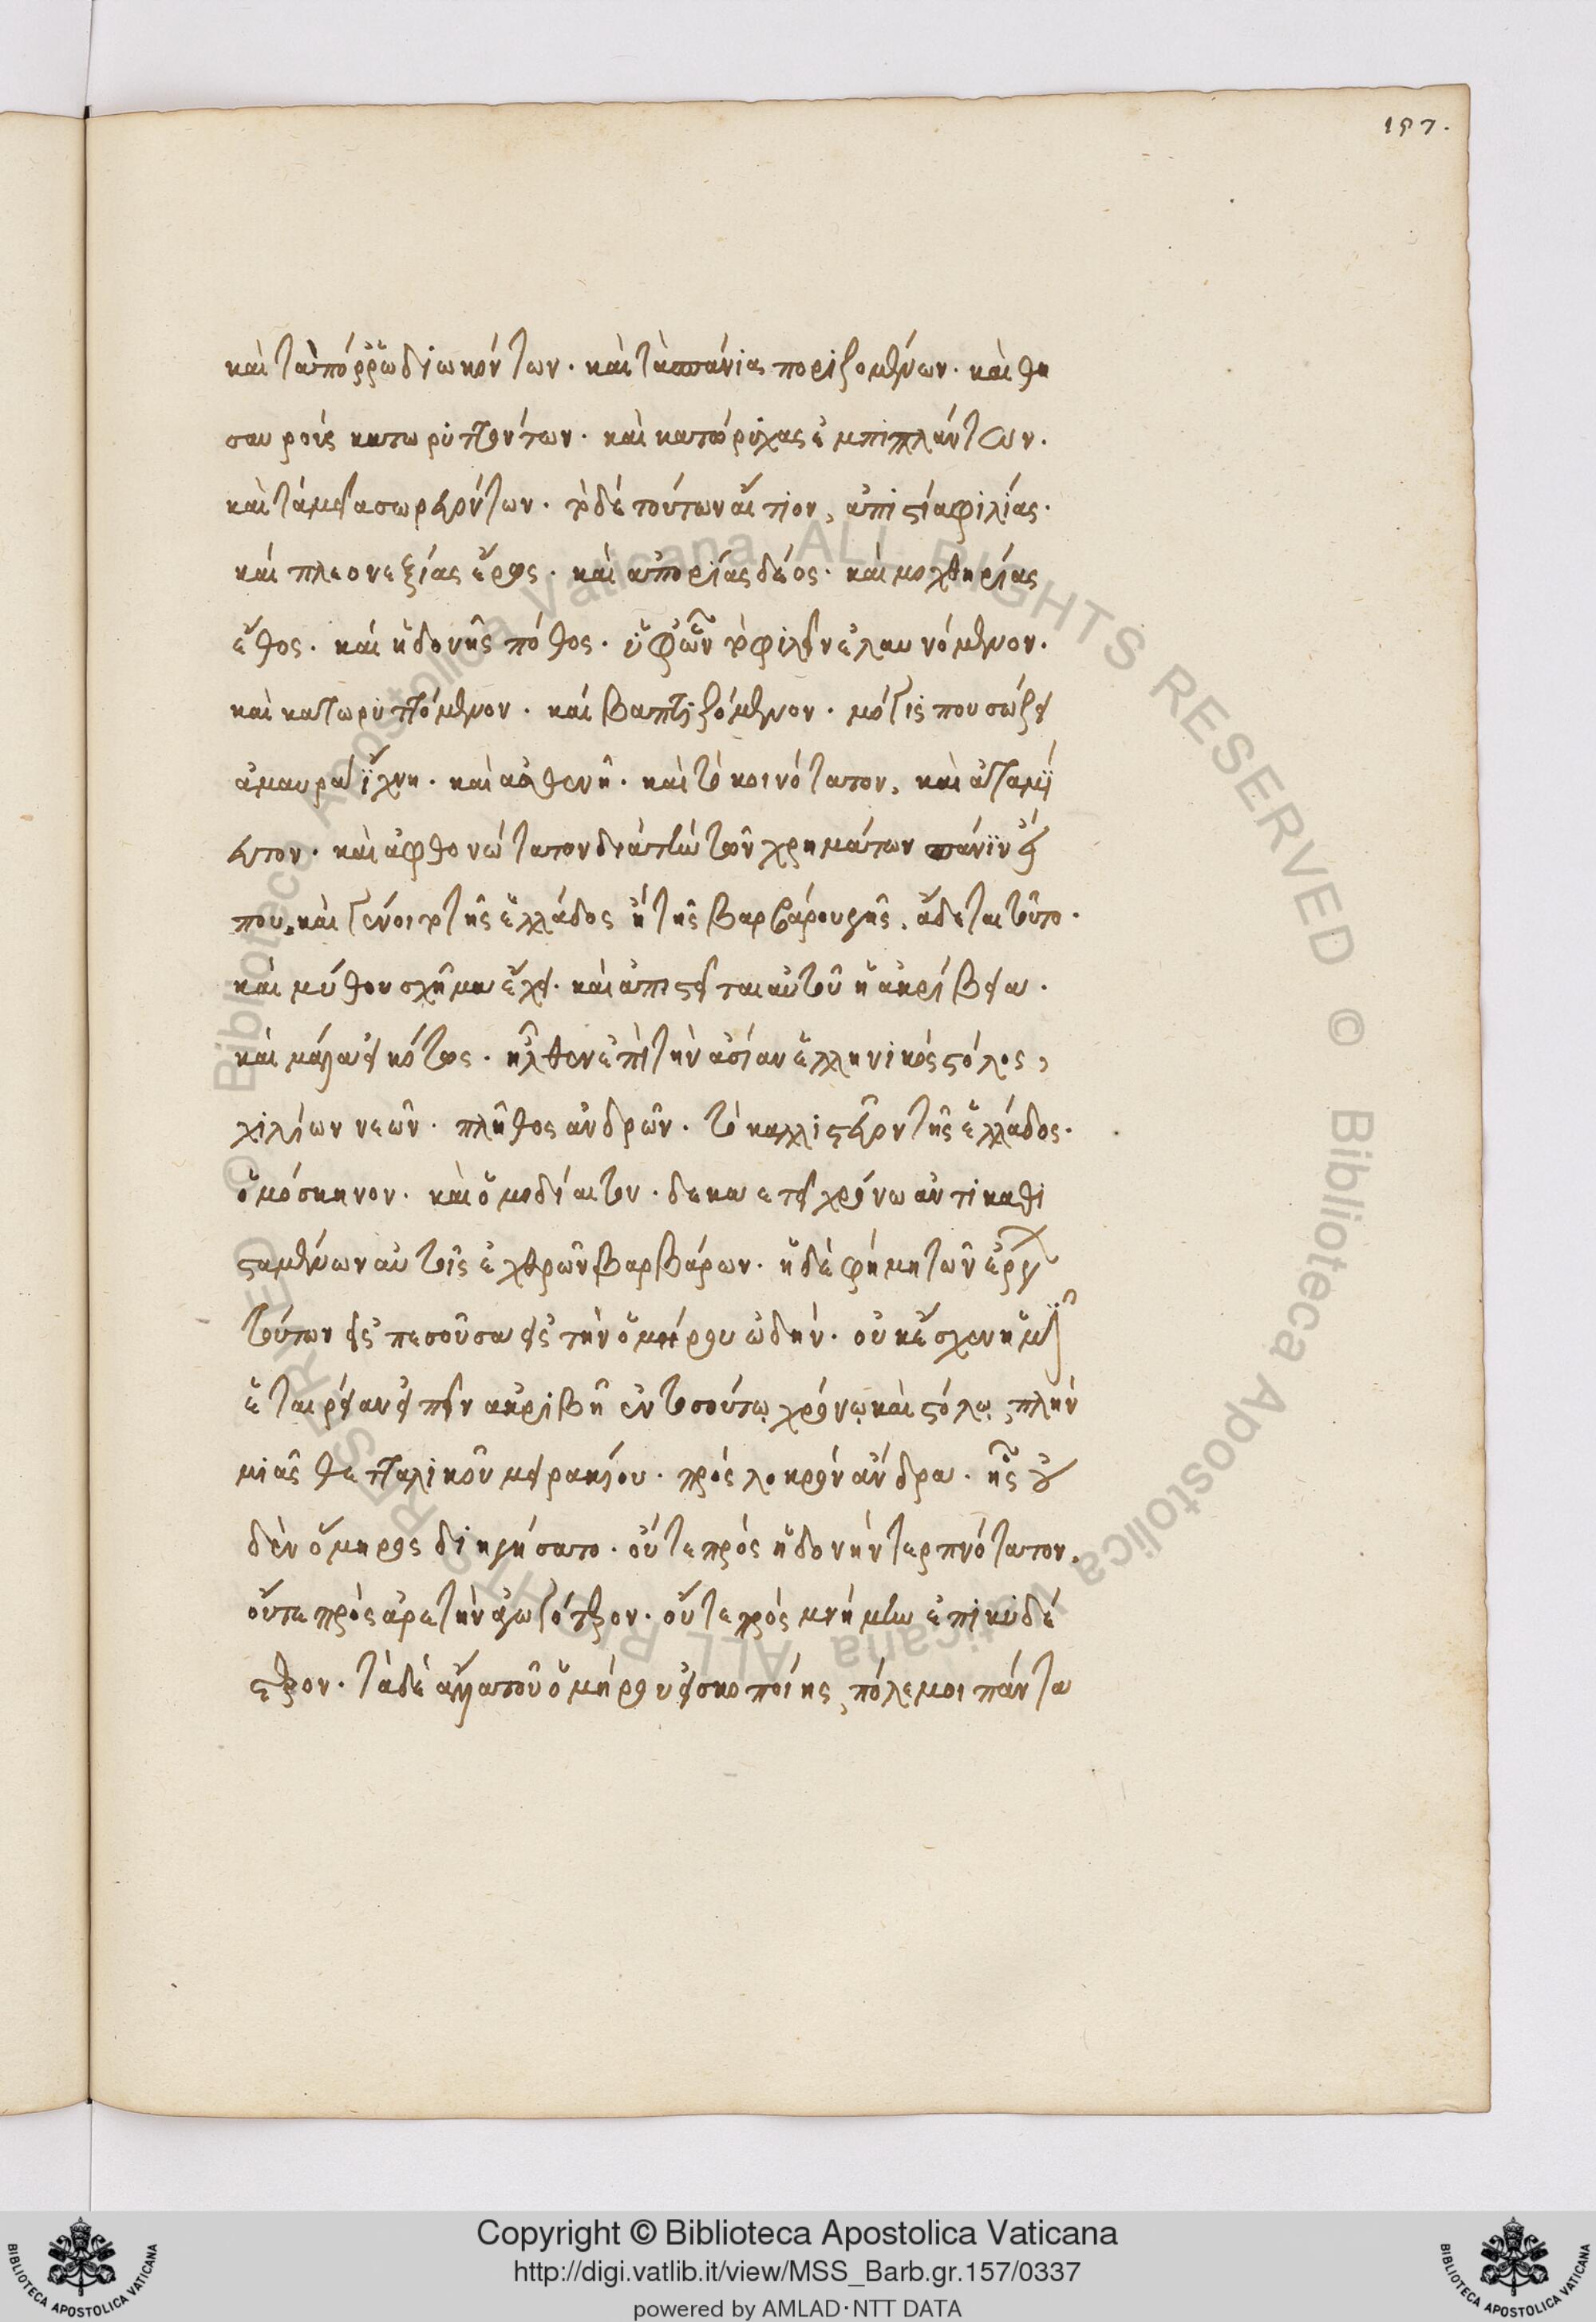 197.
καὶ τὰ πόρρω διωκόντων. καὶ τὰ σπάνια ποριζομένων. καὶ θη
σαυροὺς κατωρυττόντων. καὶ κατώρυχας ἐμπιπλάντων.
καὶ ταμεῖα σωρευόντων. τὸ δὲ τούτων αἴτιον, ἀπιστία φιλίας.
καὶ πλεονεξίας ἔρως. καὶ ἀπορίας δέος. καὶ μοχθηρίας
ἔθος. καὶ ἡδονῆς πόθος. ὑφ' ὧν τὸ φιλεῖν ἐλαυνόμενον.
καὶ κατωρυττόμενον. καὶ βαπτιζόμενον. μόγις που σώζει
ἀμαυρὰ ἴχνη. καὶ ἀσθενῆ. καὶ τὸ κοινότατον, καὶ ἀταμί
ευτον. καὶ ἀφθονώτατον διὰ τὴν τῶν χρημάτων σπάνιν εἴ
που καὶ γένοιτο τῆς ἑλλάδος ἢ τῆς βαρβάρου γῆς, ἄδεται τοῦτο.
καὶ μύθου σχῆμα ἔχει. καὶ ἀπιστεῖται αὐτοῦ ἡ ἀκρίβεια.
καὶ μάλα εἰκότως. ἦλθεν ἐπὶ τὴν ἀσίαν ἑλληνικὸς στόλος,
χιλίων νεῶν. πλῆθος ἀνδρῶν. τὸ καλλιστεῦον τῆς ἑλλάδος.
ὁμόσκηνον. καὶ ὁμοδίαιτον. δεκαετεῖ χρόνω ἀντικαθι
σταμένων αὐτοῖς ἐχθρῶν βαρβάρων. ἡ δὲ φήμη τῶν ἔργων
τούτων εἰσπεσοῦσα εἰς τὴν ὁμήρου ὠδήν. οὐκ ἔσχεν ἡμῖν
ἑταιρείαν εἰπεῖν ἀκριβῆ ἐν τοσούτῳ χρόνῳ καὶ στόλῳ, πλὴν
μιᾶς θετταλικοῦ μειρακίου. πρὸς λοκρὸν ἄνδρα. ἧς οὐ
δὲν ὅμηρος διηγήσατο. οὔτε πρὸς ἡδονὴν τερπνότατον,
οὔτε πρὸς ἀρετὴν ἀγωγότερον. οὔτε πρὸς μνήμην ἐπικυδέ
στερον. τὰ δὲ ἄλλα τοῦ ὁμήρου εἰ σκοποίης, πόλεμοι πάντα
Copyright © Biblioteca Apostolica Vaticana
http://digi.vatlib.it/view/MSS_Barb.gr.157/0337
powered by AMLAD·NTT DATA